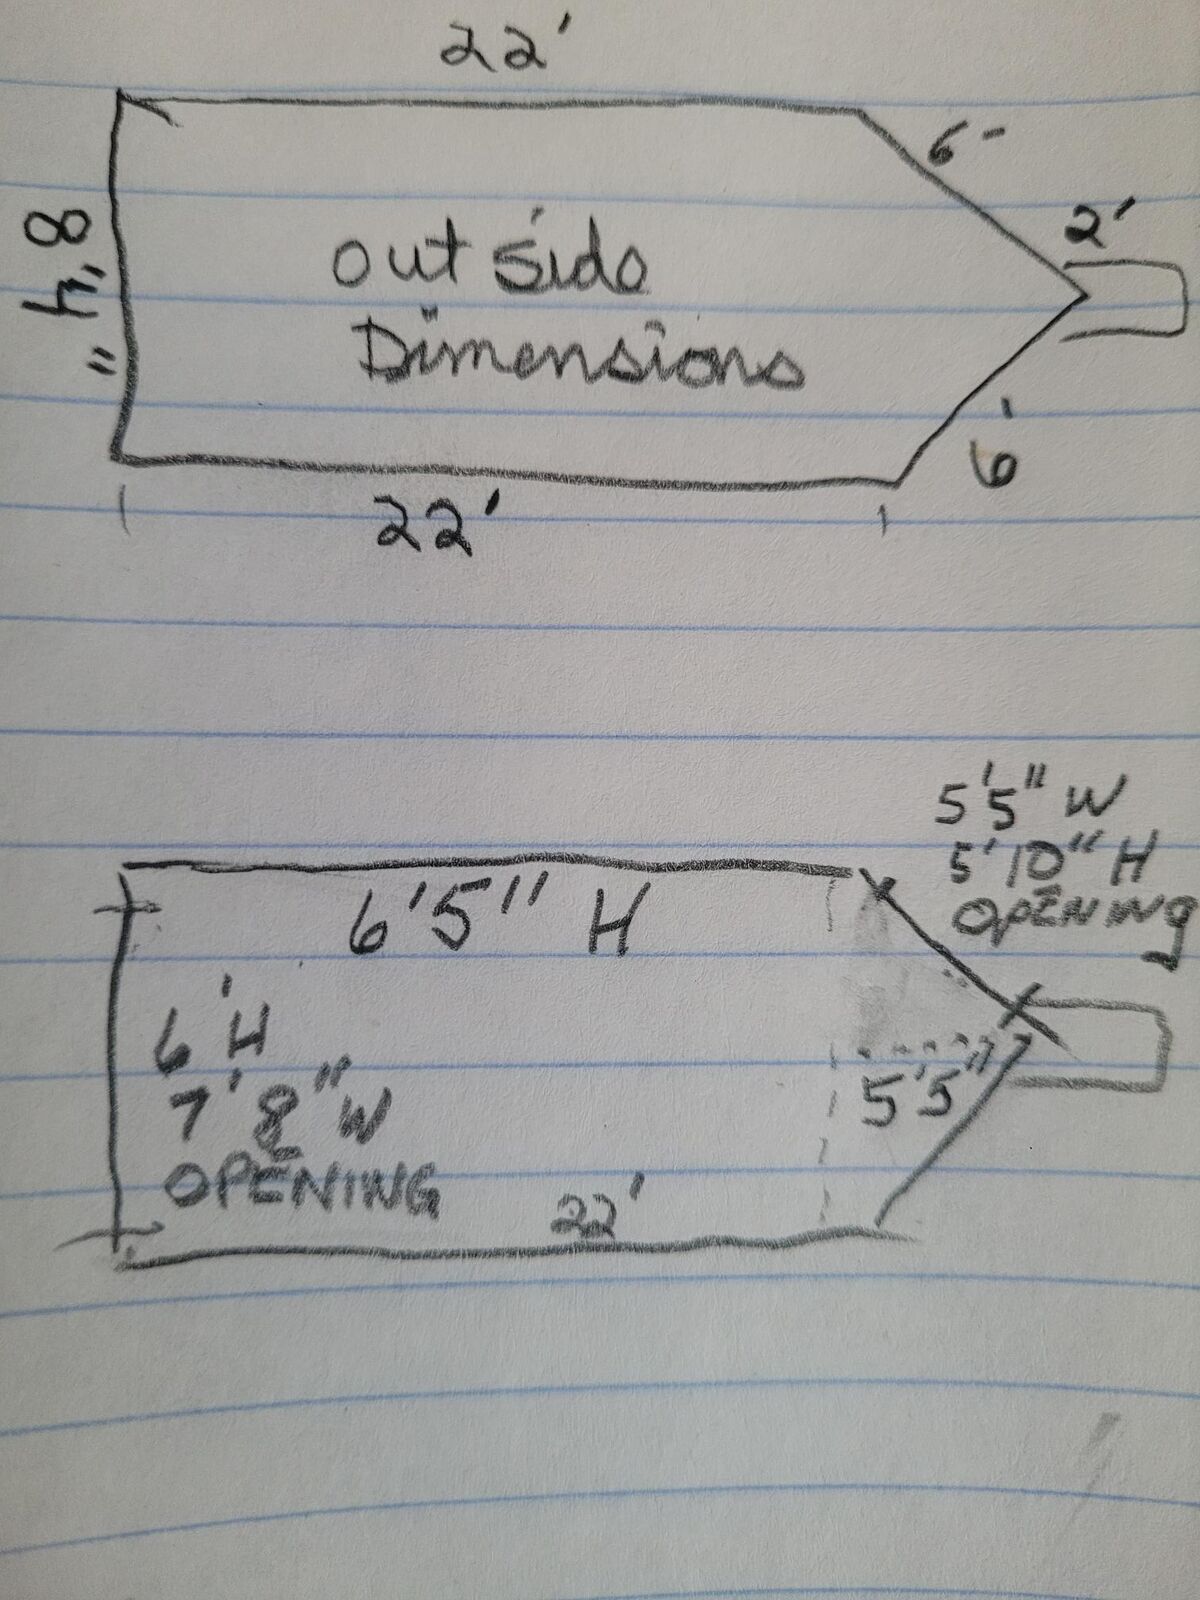 22'
6-
2'
8'4"
outside
Dimensions
6'
22'
5'5" W
5'10" H
OPENING
6'5" H
6'H
7'8"W
OPENING
5'5"
22'